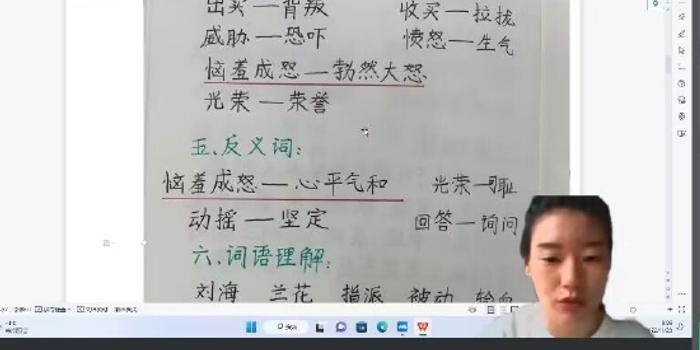 出卖—背叛 收买—拉拢
威胁—恐吓 愤怒—生气
恼羞成怒—勃然大怒
光荣—荣誉
五、反义词:
恼羞成怒—心平气和 光荣—可耻
动摇—坚定 回答—询问
六、词语理解:
刘海 兰花 指派 被动